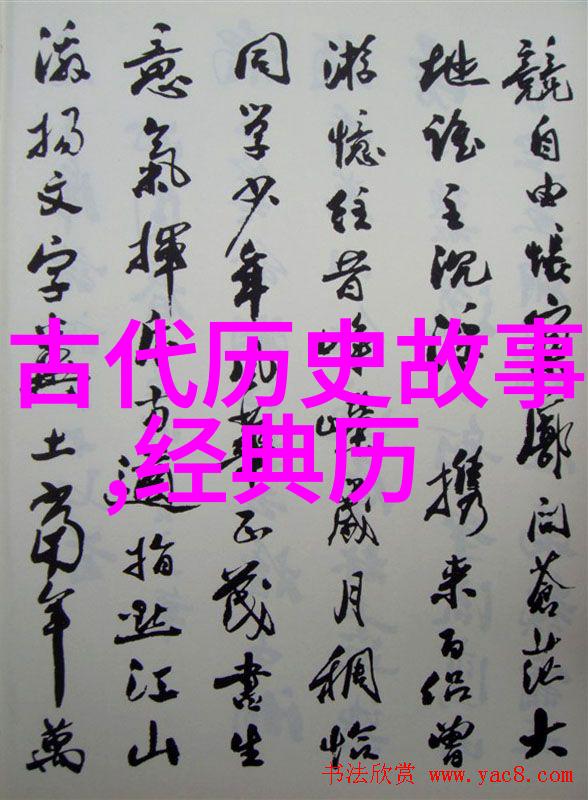 競自由悵寥廓问蒼茫大
地谁主沉浮携来百侣曾
游憶往昔峥嵘歲月稠恰
同学少年风華正茂書生
意氣揮斥方遒指点江山
激揚文字糞土當年萬
古代历史故事
,经典历
书法欣赏 www.yac8.com